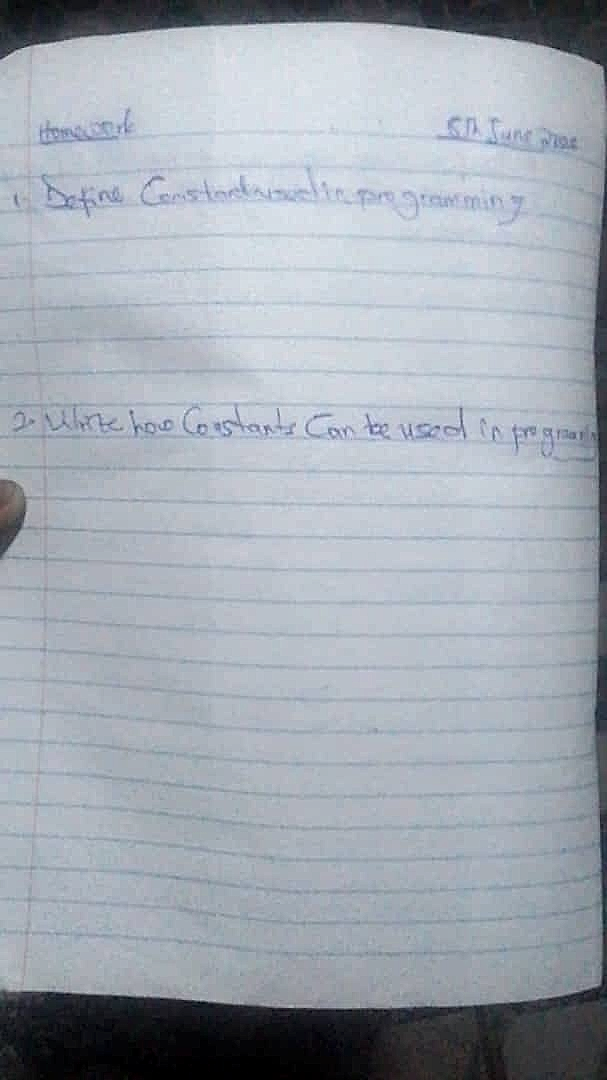 Homework
5th June
1. Define Constant used in programming
2. Write how Constants Can be used in